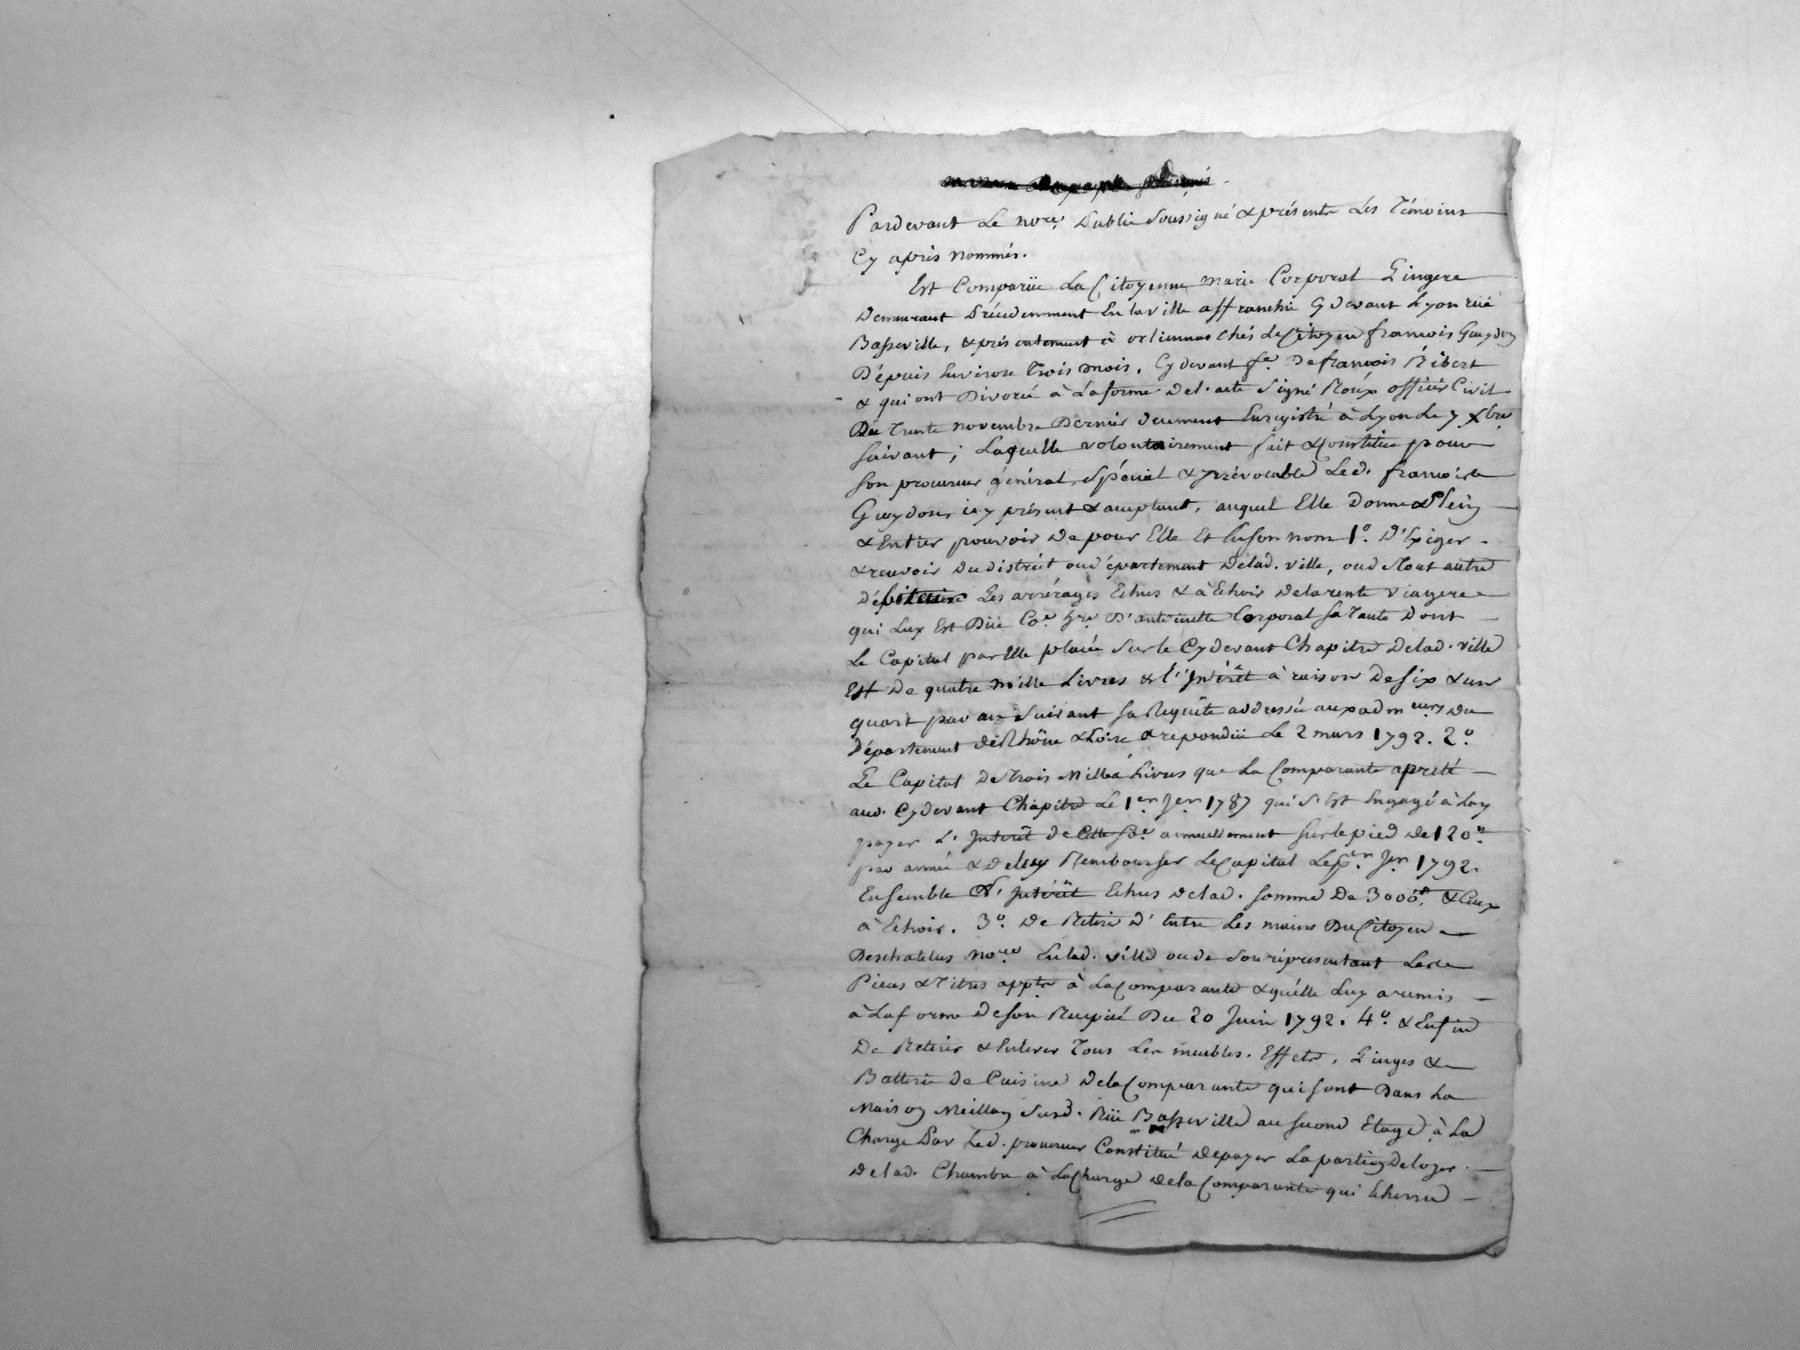 Pardevant Le no.re Public Soussigné & présents Les Témoins
Cy après nommés.
Est Comparüe La Citoyenne marie Corporal Lingere
Demeurant Précédemment En la ville affranchie Cy devant Lyon rüe
Basseville, & présentement à orliennas chés Le Citoyen françois Gueydon
Dépuis Environ Trois mois, Cy devant f.e De françois Ribert
& qui ont Divorcé à La forme del'acte Signé Roux officier Civil
Du Trente novembre Dernier duement Enregistré à Lyon Le 7 Xbre
Suivant; Laquelle volontairement fait & Constitue pour
Son procureur général, Spécial & yrrévocable Led. françois
Gueydon icy présent & acceptant, auquel Elle donne Plein
& Entier pouvoir De pour Elle Et En son nom 1.° D'Exiger
& recevoir Du district ou département Delad. ville, ou de Tout autre
Les arrérages Echus & à Echoir de la rente viagere
qui Luy Est Düe Co.e D'antoinette Corporal sa Tante Dont
Le Capital par Elle placé Sur le Cydevant Chapitre Delad. ville
Est De quatre mille Livres & l'Intérêt à raison De six & un
quart par an Suivant sa Requête addressée aux adm.eurs Du
Département de Rhône & Loire & repondüe Le 2 mars 1792. 2.°
Le Capital De Trois Mille Livres que La Comparante a prêté
aud. Cydevant Chapitre Le 1.er J.er 1787 qui s'Est Engagé à Luy
payer L'Intérêt de Cette annuellement Sur le pied de 120.#
par année & De luy Rembourser Le Capital Le J.er 1792.
Ensemble L'Intérêt Echus Delad. somme De 3000.# & Ceux
à Echoir. 3.° De Retirer D'Entre Les mains Du Citoyen
Deschatelus no.re Enlad. ville ou de Son réprésentant Les
Pieces & Titres appt.s à La Comparante & qu'Elle Luy a remis
à La forme De son Recepicé Du 20 Juin 1792. 4.° & Enfin
De Retirer & Enlever Tous Les meubles, Effets, Linges &
Batterie De Cuisine De la Comparante qui sont Dans La
Maison Meillan Susd. Rüe Basseville au second Etage à La
Charge Par Led. procureur Constitué de payer La portion De loyer
Delad. Chambre à La charge De la Comparante qui Echerra